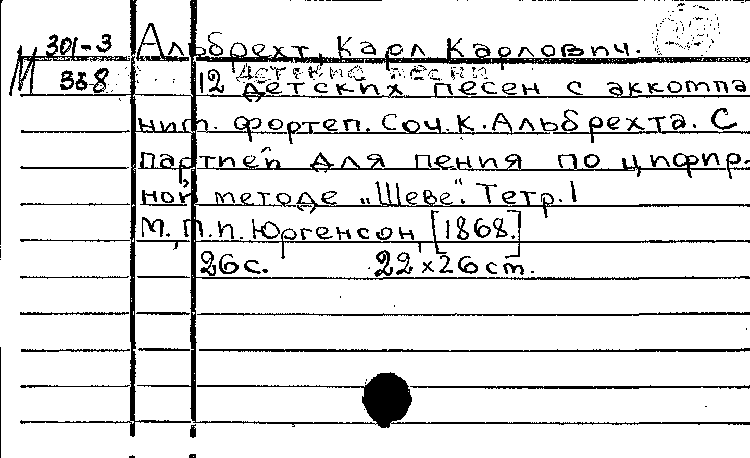 301-3 Альбрехт, Карл Карлович.
М 338 12 детских песен с аккомпа
ним. фортеп. Соч. К. Альбрехта. С
партией для пения по цифир-
ной методе „Шеве". Тетр. 1
М., П. И. Юргенсон, [1868.]
26 с. 22 x 26 cm.